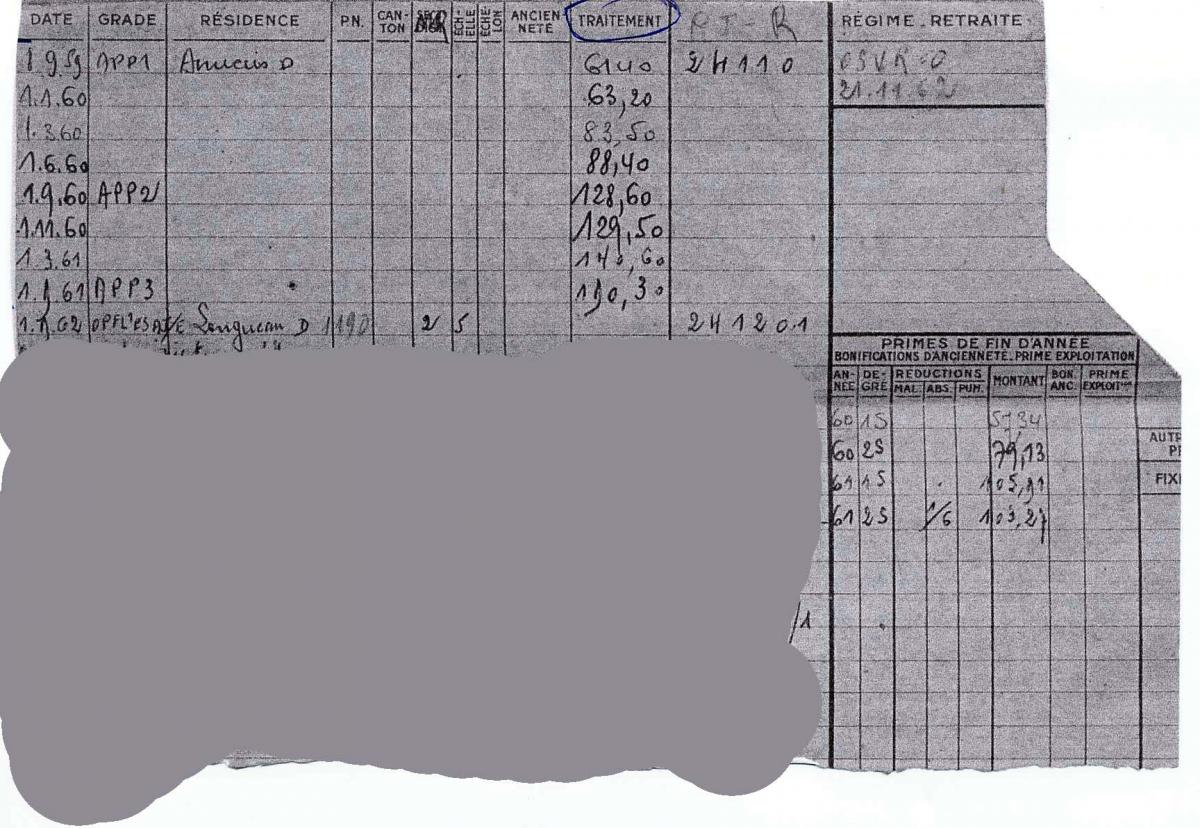 DATE GRADE RÉSIDENCE P.N. CAN-TON ÉCH-ELLE ÉCHE-LON ANCIEN NETÉ TRAITEMENT R RÉGIME-RETRAITE
1.9.59 APP1 D 61,40 24110
1.1.60 63,20 21.11.62
1.3.60 83,50
1.6.60 88,40
1.9.60 APP2 128,60
1.11.60 129,50
1.3.61 140,60
61 APP3 30
62 Longueau D 1190 2 5 241201
PRIMES DE FIN D'ANNÉE
BONIFICATIONS D'ANCIENNETÉ. PRIME EXPLOITATION
AN-NÉE DE-GRÉ RÉDUCTIONS MONTANT BON. ANC. PRIME EXPLOIT
MAL. ABS. PUN.
60 1S 57,34
60 2S 79,13
61 1S 105,91
61 2S 1/6 103,27
AUTR
PR
FIXE
/1